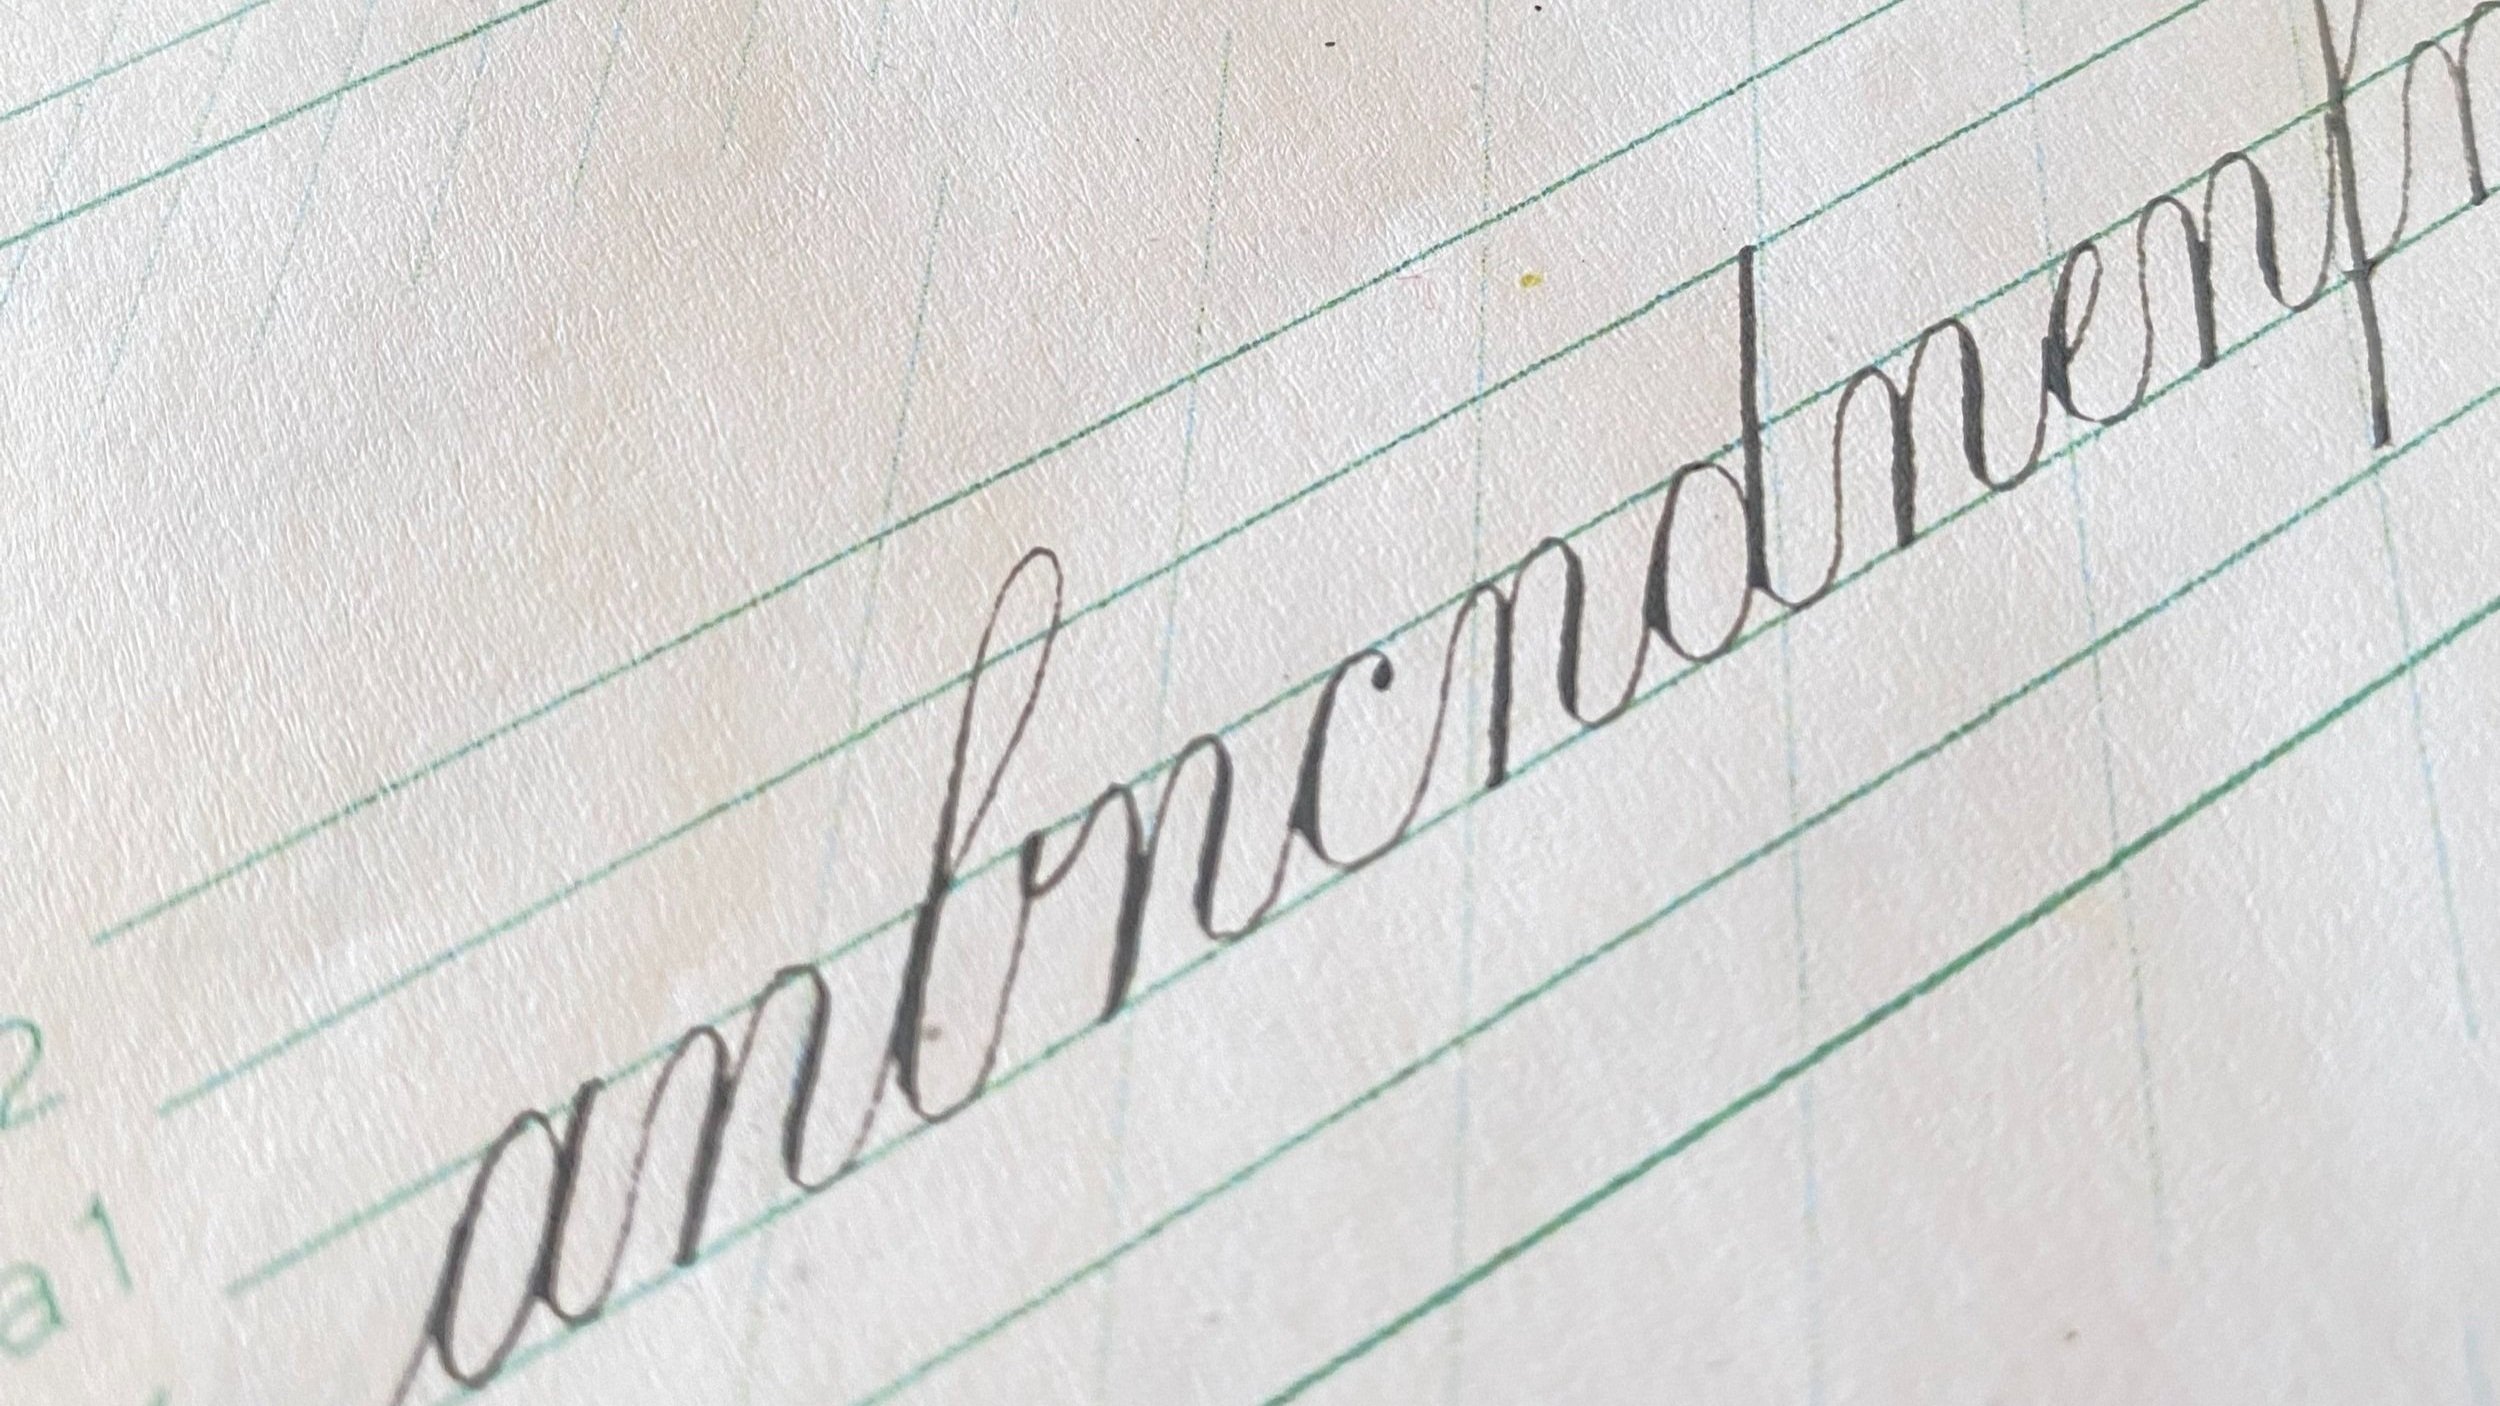 2
a 1
anbncndnenfn